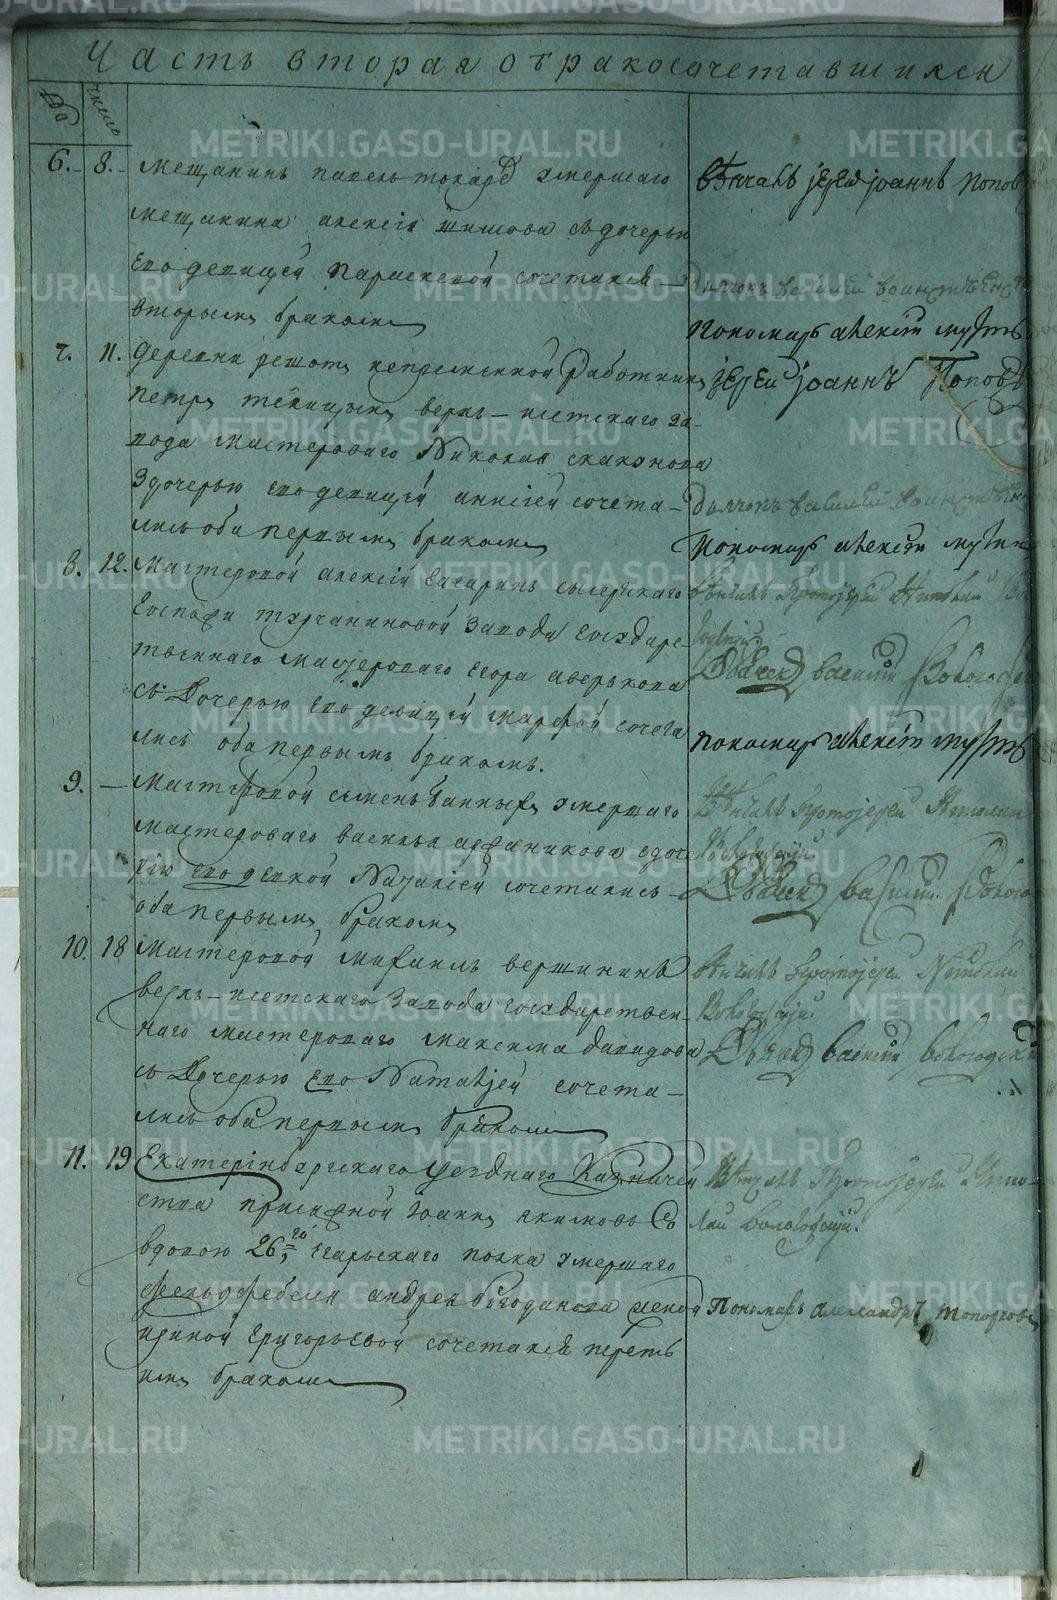 Часть вторая о бракосочетавшихся
№
число
6. 8. Мещанинъ павелъ токарев умершаго
мещанина алексія шишова съ дочерью
его девицей параскевой сочетался
вторымъ бракомъ
Вѣнчалъ іерей іоаннъ Попов
Пономарь алексій
7. 11. Деревни решот непременной работникъ
петръ верхъ-исетскаго за-
вода мастероваго Николая
з дочерью его девицей анисіей сочета-
лись оба первымъ бракомъ
іерей іоаннъ Поповъ
Пономарь алексій
8. 12. Мастеровой алексій сысерскаго
госпожи турчаниновой завода государс-
твеннаго мастероваго егора аверкова
съ Дочерью его девицей марфой сочета
лись оба первымъ бракомъ.
вѣнчалъ протоіерей Николай
Дьячекъ василій Вологодск
пономарь алексій
9. — Мастеровой семенъ умершаго
мастероваго василья сдоче
рію его девкой Наталіей сочетались
оба первымъ бракомъ
Вѣнчалъ Протоіерей Николай
Вологодскій
Дьячекъ василій Волого
10. 18 Мастеровой михаилъ вершининъ
верхъ-исетскаго завода государствен-
наго мастероваго максима давидова
съ Дочерью его Наталіей сочета-
лись оба первымъ бракомъ
вѣнчалъ протоіерей Николай
Вологодскій
Дьячекъ василій вологодскій
11. 19 Екатерінбургскаго уезднаго Казначей
ства присяжной іоаннъ якимовъ Со
вдовою 26го егарьскаго полка умершаго
фельдфебеля андрея богданова женой
ириной григорьевой сочетался перьвъ
имъ бракомъ
Вѣнчалъ Протоіерей Нико-
лай Вологодскій.
Пономарь Александръ топорковъ
METRIKI.GASO-URAL.RU